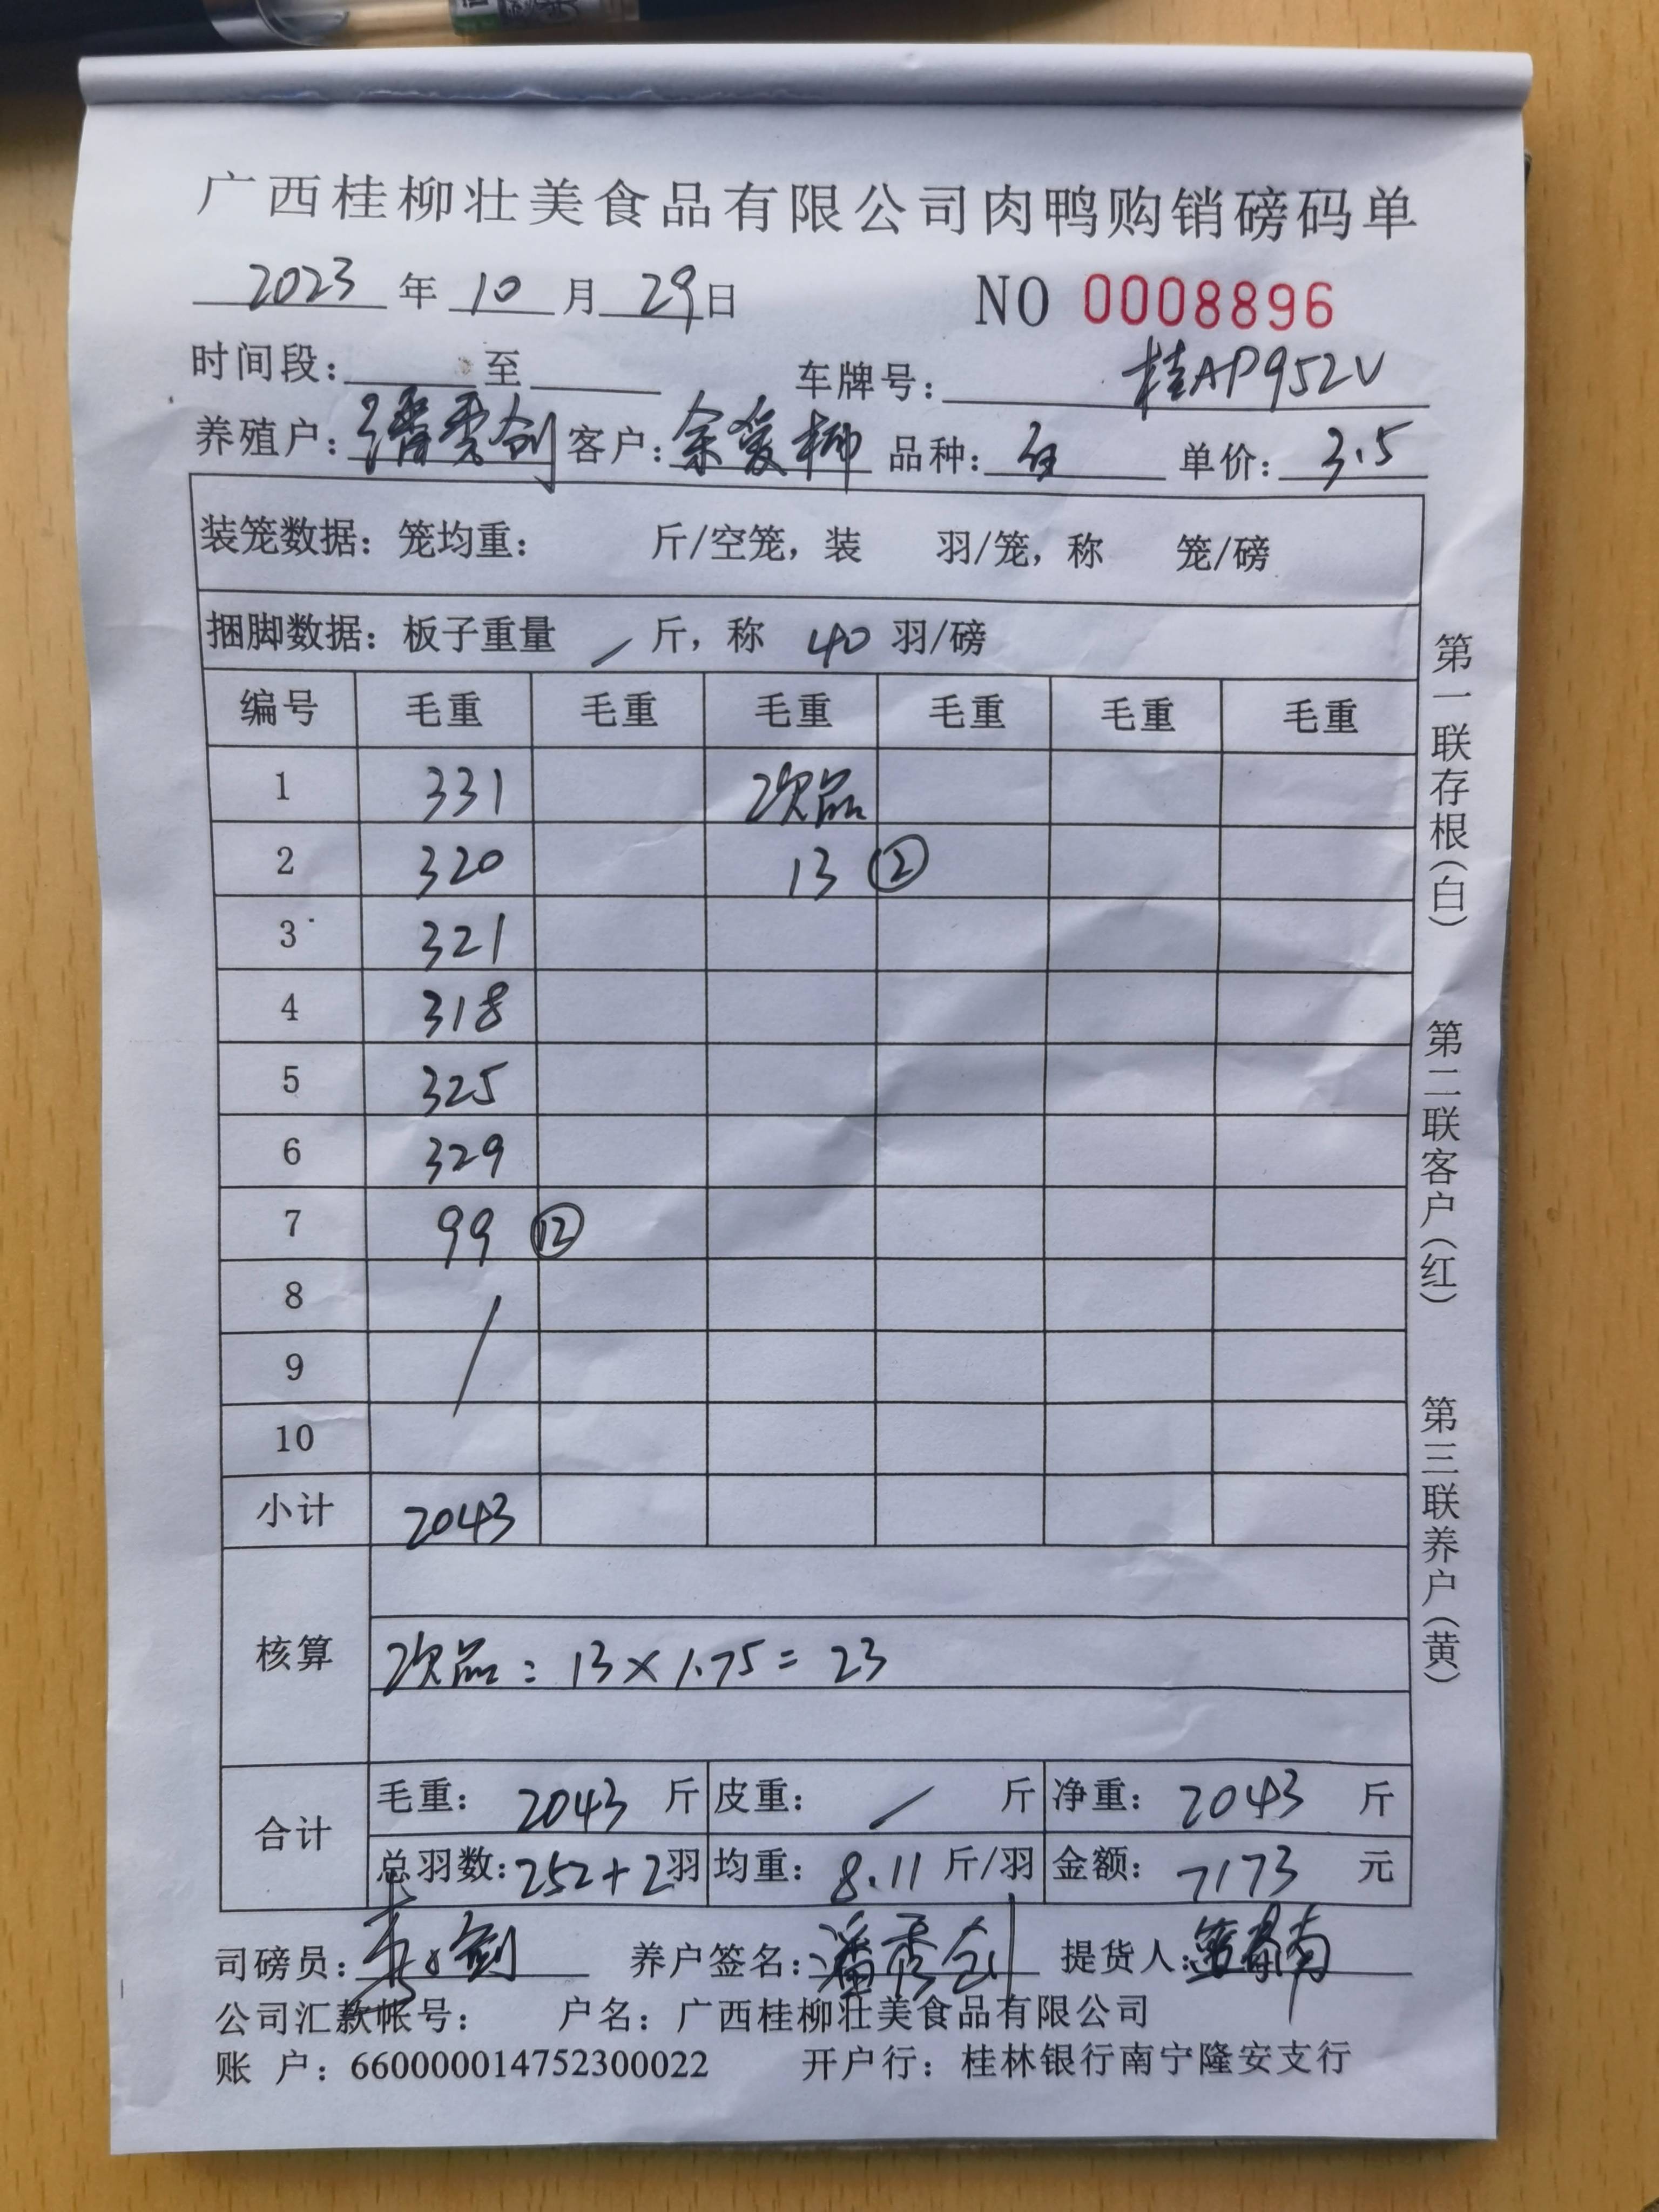 广西桂柳壮美食品有限公司肉鸭购销磅码单
2023 年 10 月 29 日 NO 0008896
时间段： 至 车牌号： 桂AP952V
养殖户：潘秀创 客户：余爱柳 品种： 白 单价： 3.5
装笼数据：笼均重： 斤/空笼，装 羽/笼，称 笼/磅
捆脚数据：板子重量 / 斤，称 40 羽/磅
编号 毛重 毛重 毛重 毛重 毛重 毛重
1 331 次品
2 320 13 ②
3 321
4 318
5 325
6 329
7 99 ⑫
8 /
9
10
小计 2043
核算
次品：13×1.75=23
合计
毛重： 2043 斤 皮重： / 斤 净重： 2043 斤
总羽数：252+2羽 均重： 8.11 斤/羽 金额： 7173 元
司磅员： 养户签名：潘秀创 提货人：
公司汇款帐号： 户名：广西桂柳壮美食品有限公司
账 户：660000014752300022 开户行：桂林银行南宁隆安支行
第一联存根（白） 第二联客户（红） 第三联养户（黄）